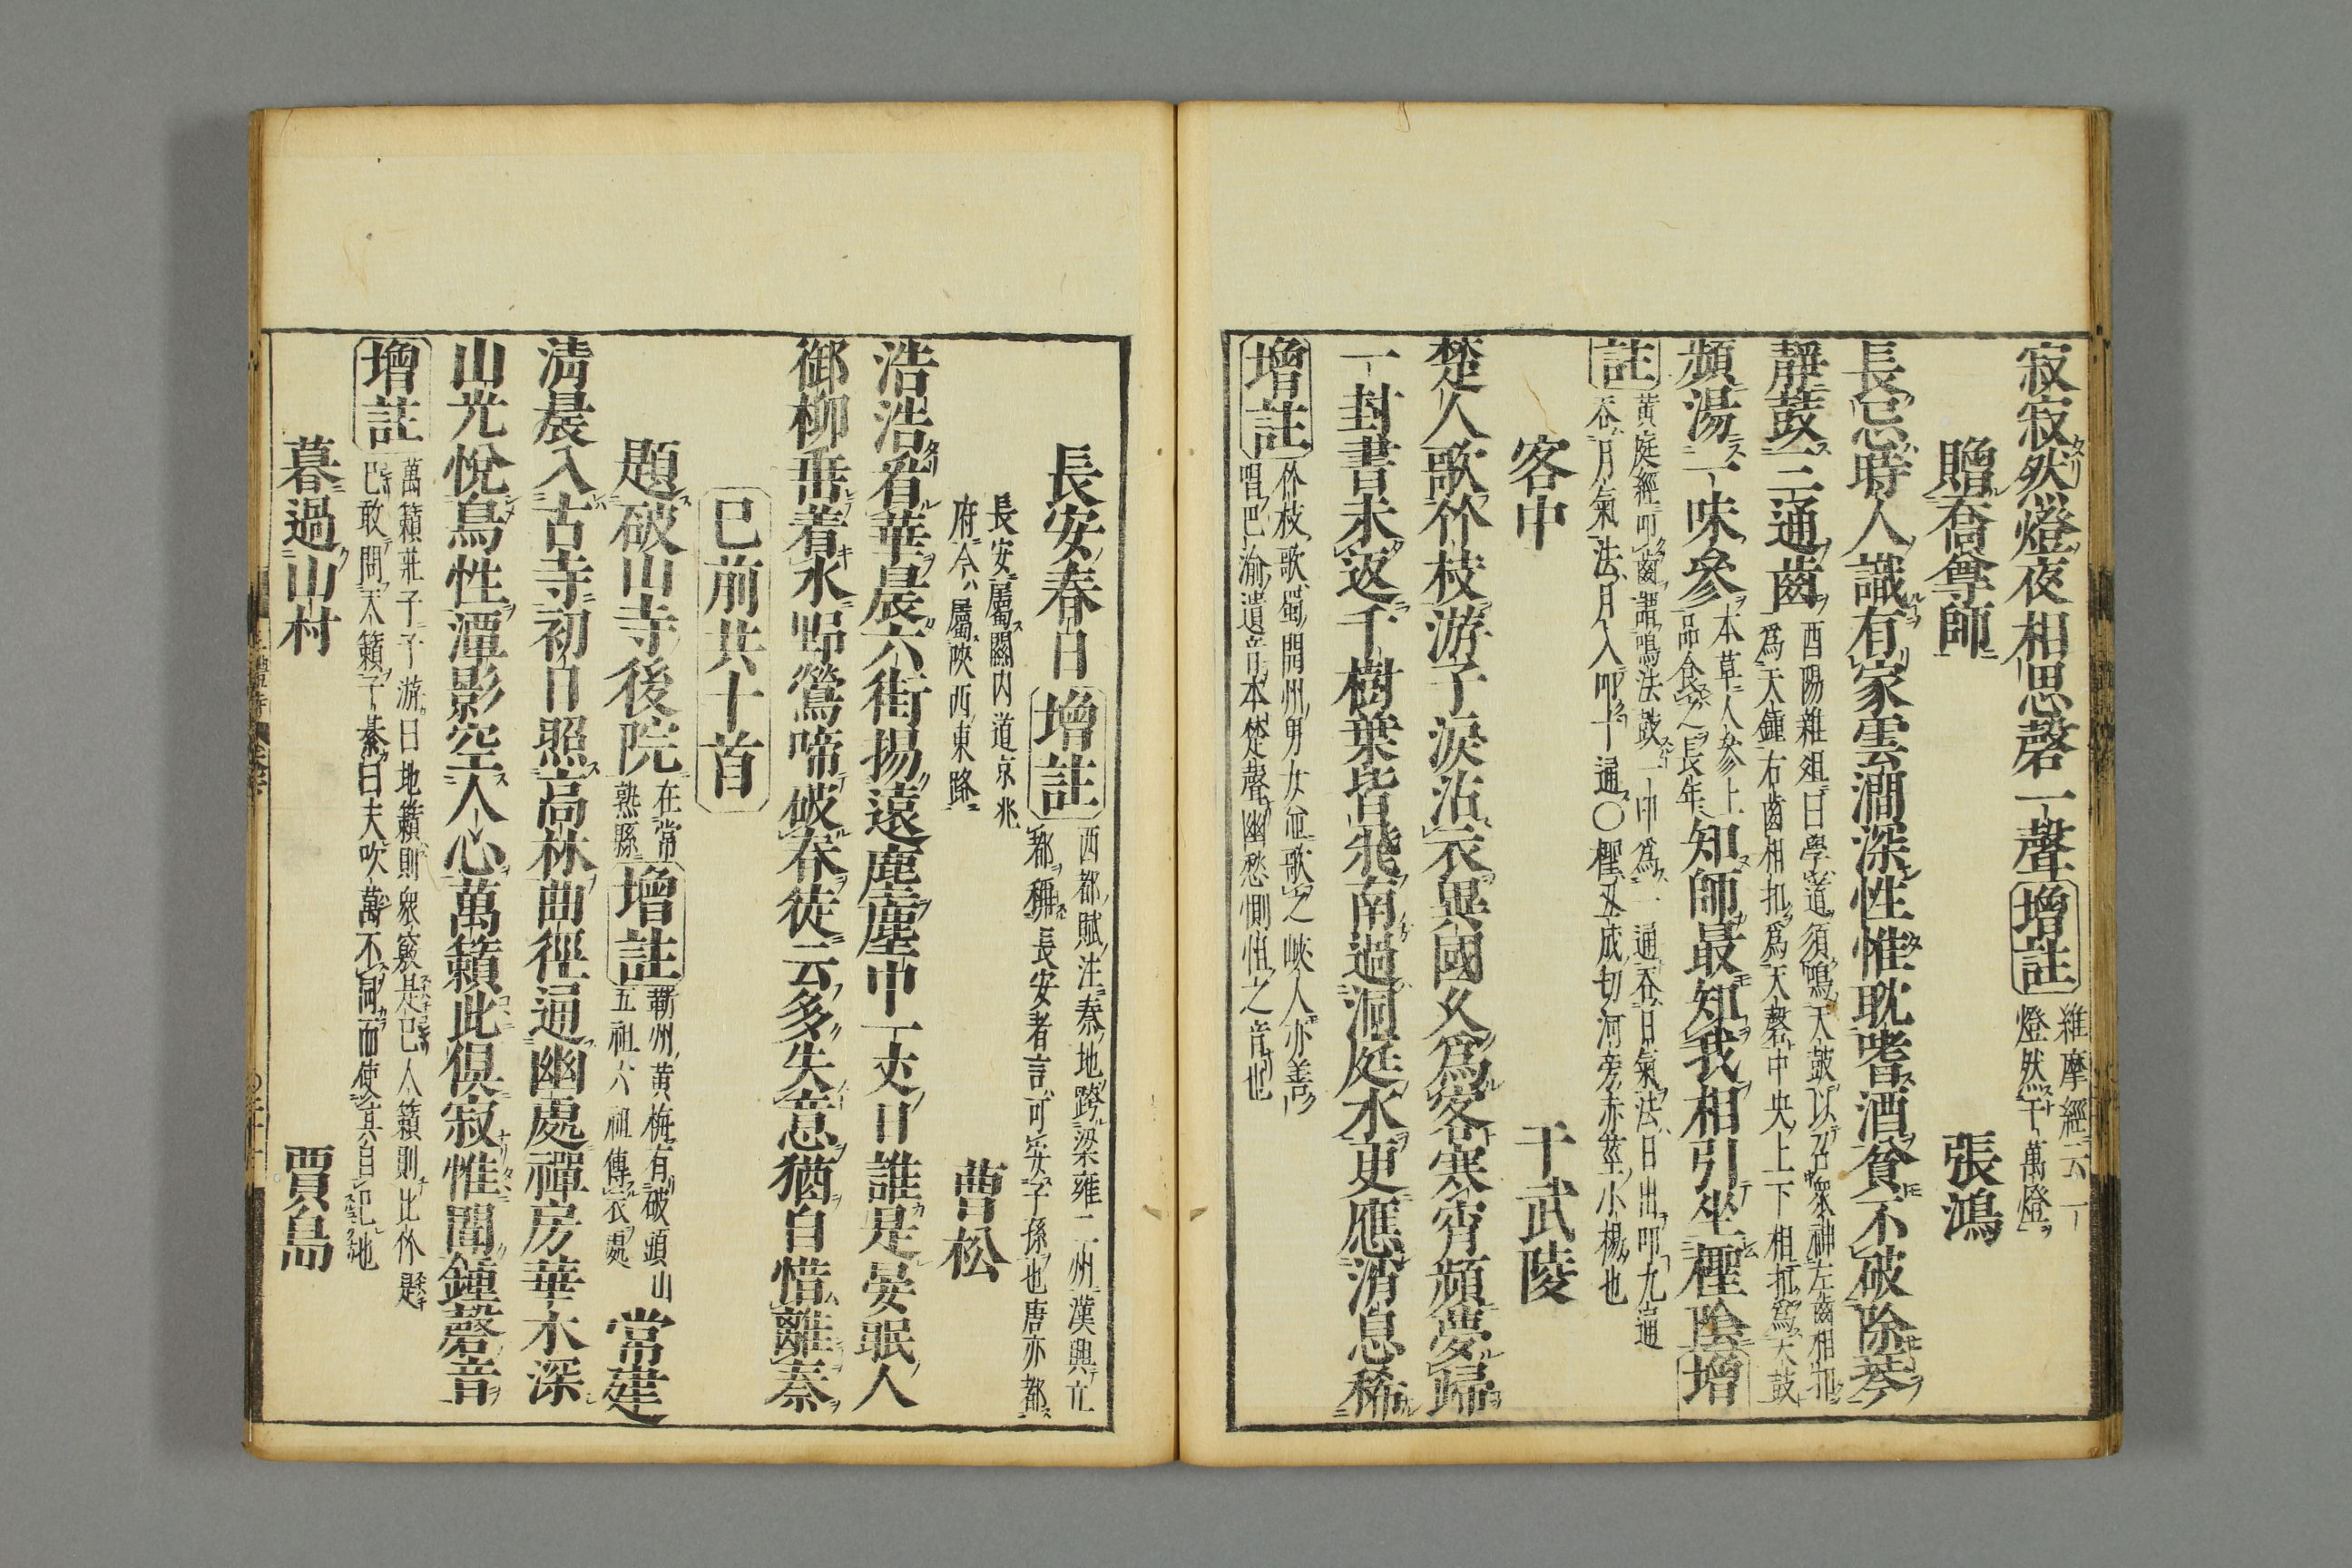 寂寂然燈夜相思磬一聲增註維摩經云一
燈然千萬燈
贈喬尊師 張鴻
長忌時人識有家雲澗深性惟耽嗜酒貧不破除琴
靜鼓三通齒酉陽雜俎曰學道須鳴天鼓以召衆神左齒相扣
爲天鍾右齒相扣爲天磬中央上下相扣爲天鼓
頻湯一味參本草人參上
品食之長年知師最知我相引坐檉陰增
註黃庭經叩齒謂鳴法鼓一叩爲一通吞日氣法日出叩九通
吞月氣法月入叩十通〇檉丑成切河旁赤莖小楊也
客中 于武陵
楚人歌竹枝游子淚沾衣異國久爲客寒宵頻夢歸
一封書未返千樹葉皆飛南過洞庭水更應消息稀
增註竹枝歌蜀開州男女並歌之峽人亦善
唱巴渝遺音本楚聲幽愁惻怛之音也
長安春日增註西都賦注秦地跨梁雍二州漢興立
都稱長安者言可安子孫也唐亦都
長安屬關內道京兆
府今屬陝西東路 曹松
浩浩看華晨六街揚遠塵塵中一丈日誰是晏眠人
御柳垂着水野鶯啼破春徒云多失意猶自惜離秦
已前共十首
題破山寺後院在常
熟縣增註蘄州黃梅有破頭山
五祖六祖傳衣處 常建
淸晨入古寺初日照高林曲徑通幽處禪房華木深
山光悅鳥性潭影空人心萬籟此俱寂惟聞鍾磬音
增註萬籟莊子子游曰地籟則衆竅是已人籟則比竹是
已敢問天籟子綦曰夫吹萬不同而使其自已也
暮過山村 賈島